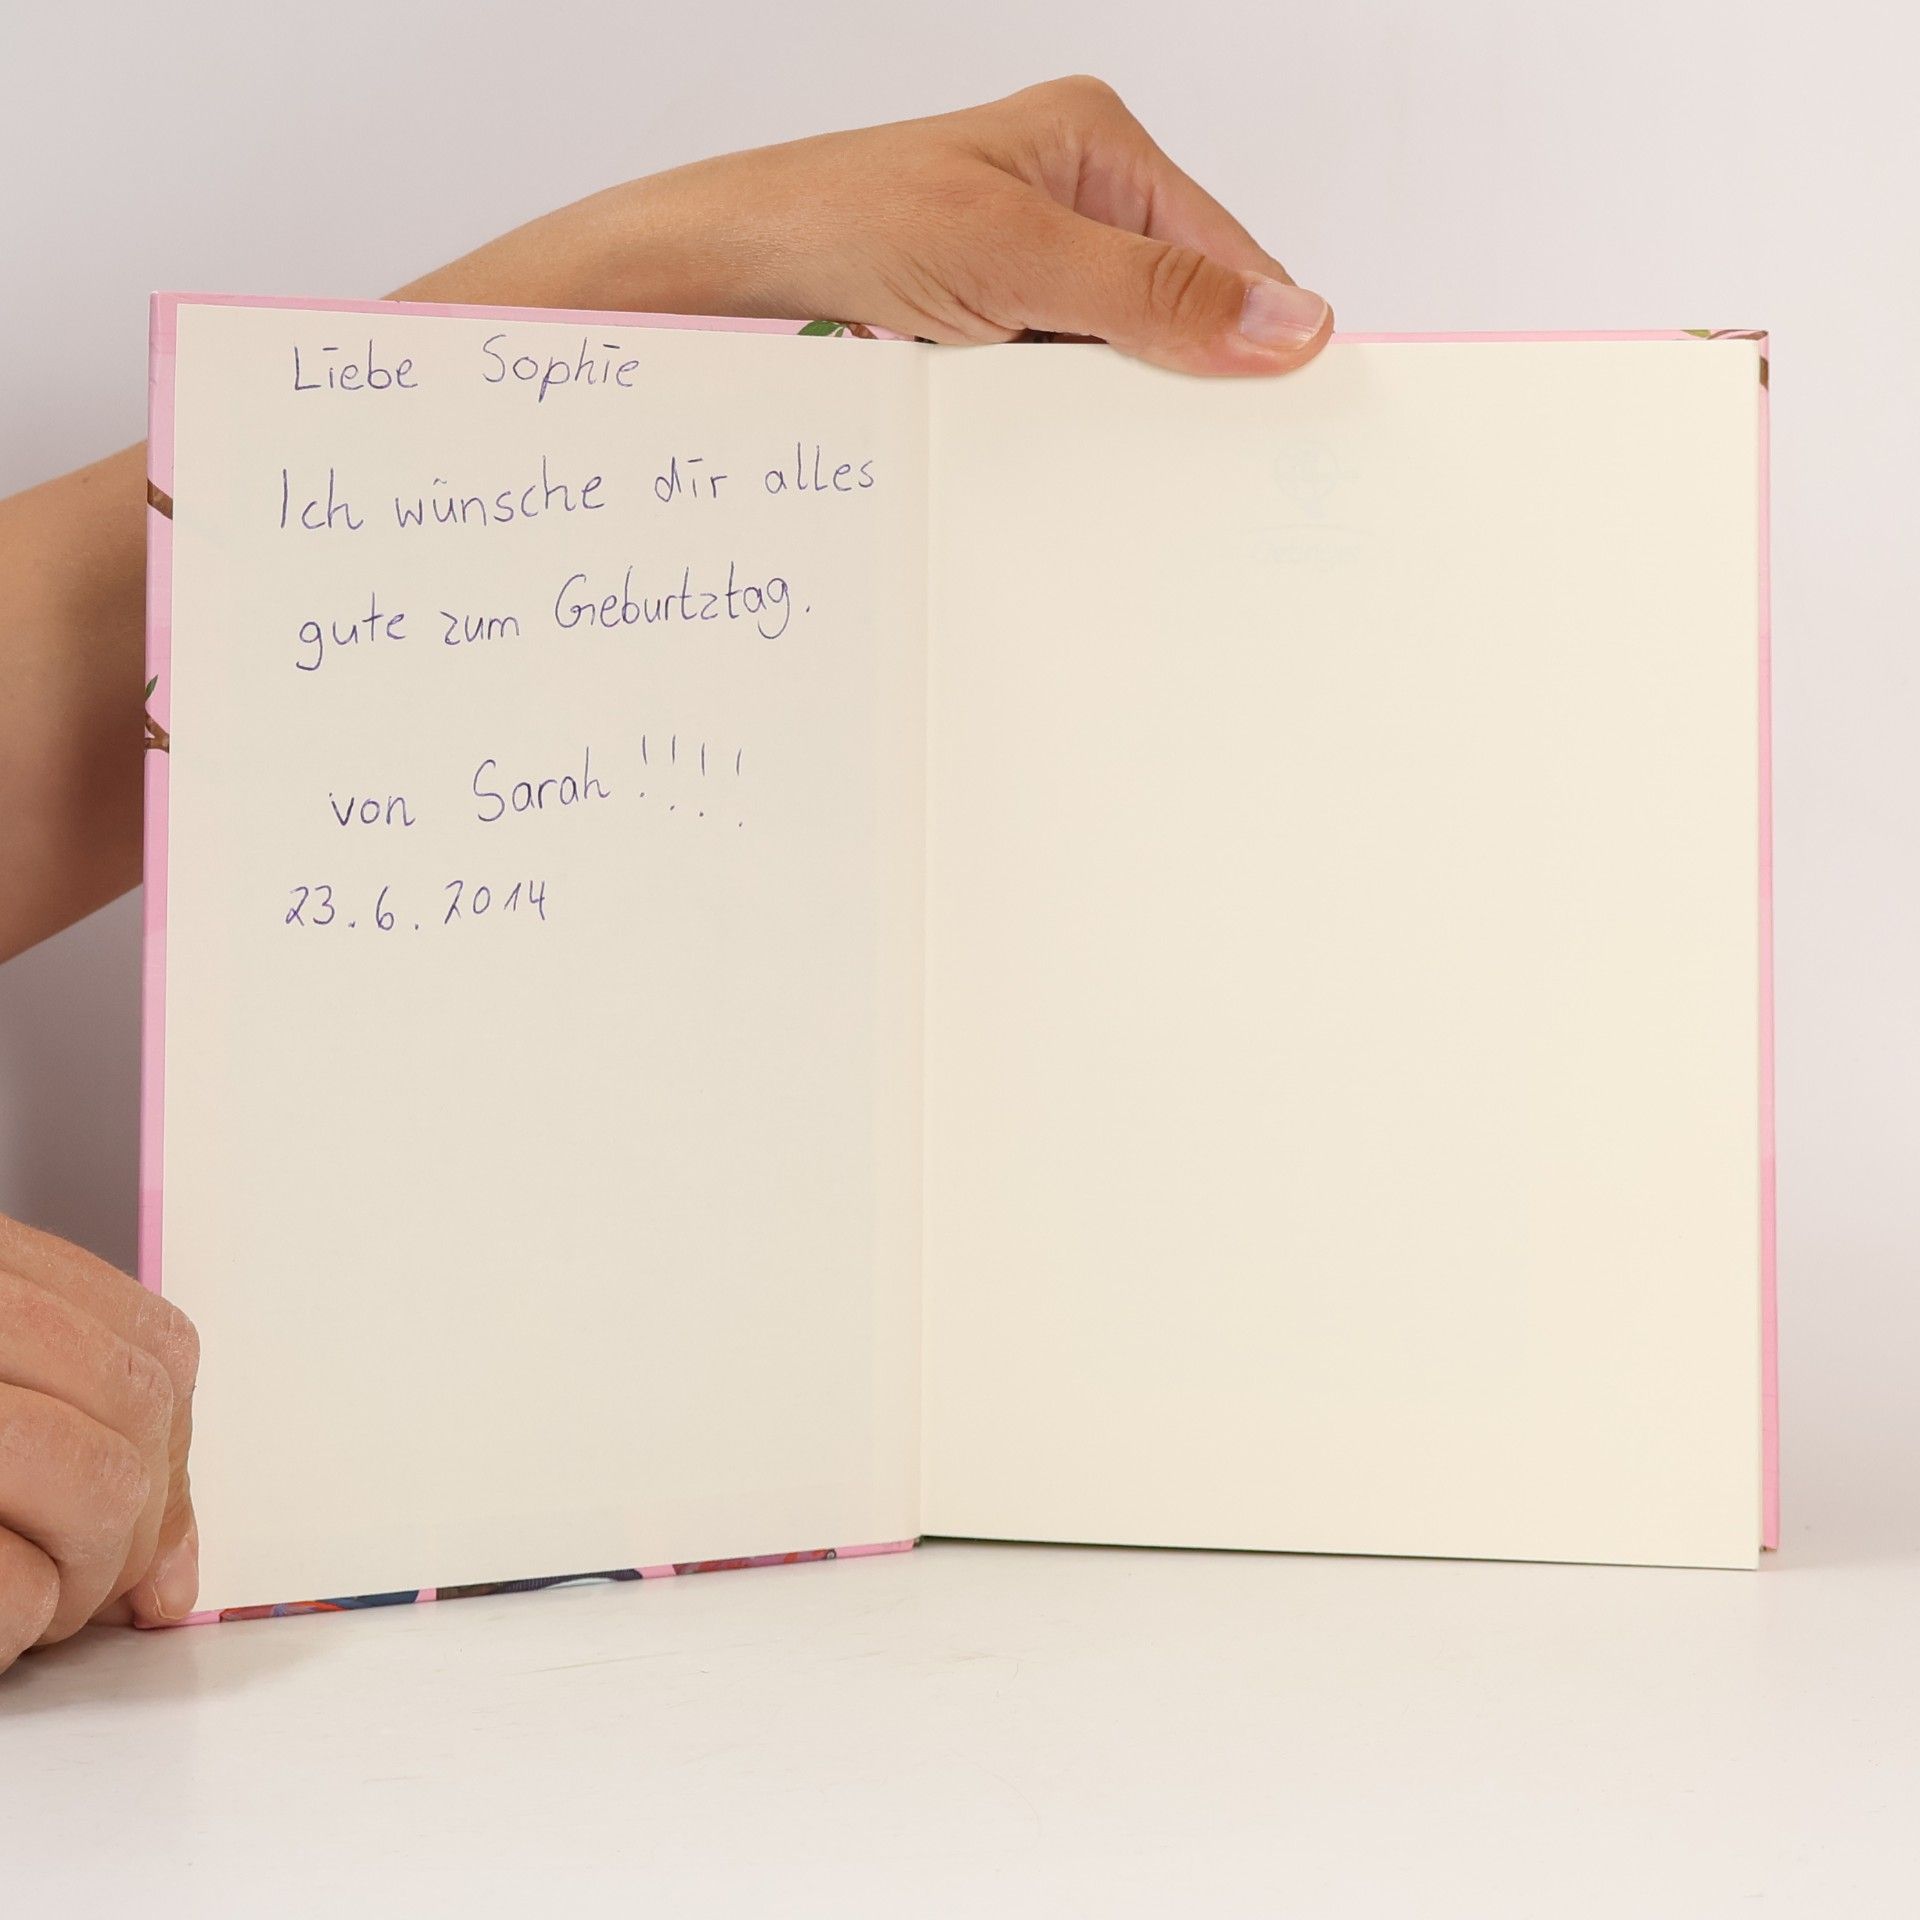 Liebe Sophie
Ich wünsche dir alles
gute zum Geburtztag.
von Sarah!!!!
23.6.2014